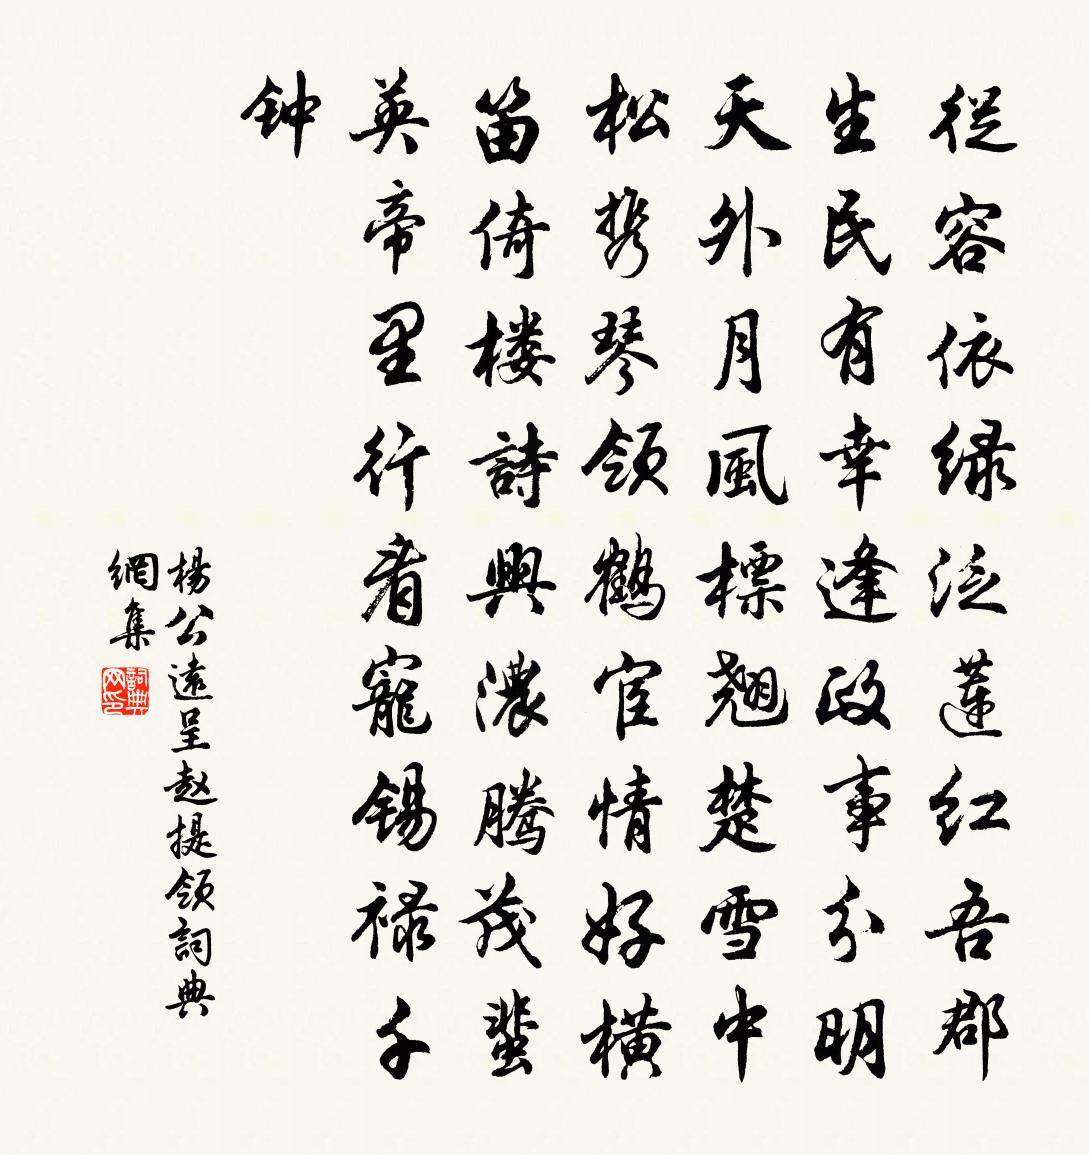 從容依緑泛蓮紅吾郡
生民有幸逢政事分明
天外月風標翹楚雪中
松携琴領鶴宦情好橫
笛倚楼詩興濃騰茂蜚
英帝里行看寵錫禄千
钟
楊公遠呈赵提領詞典
網集
詞典網印